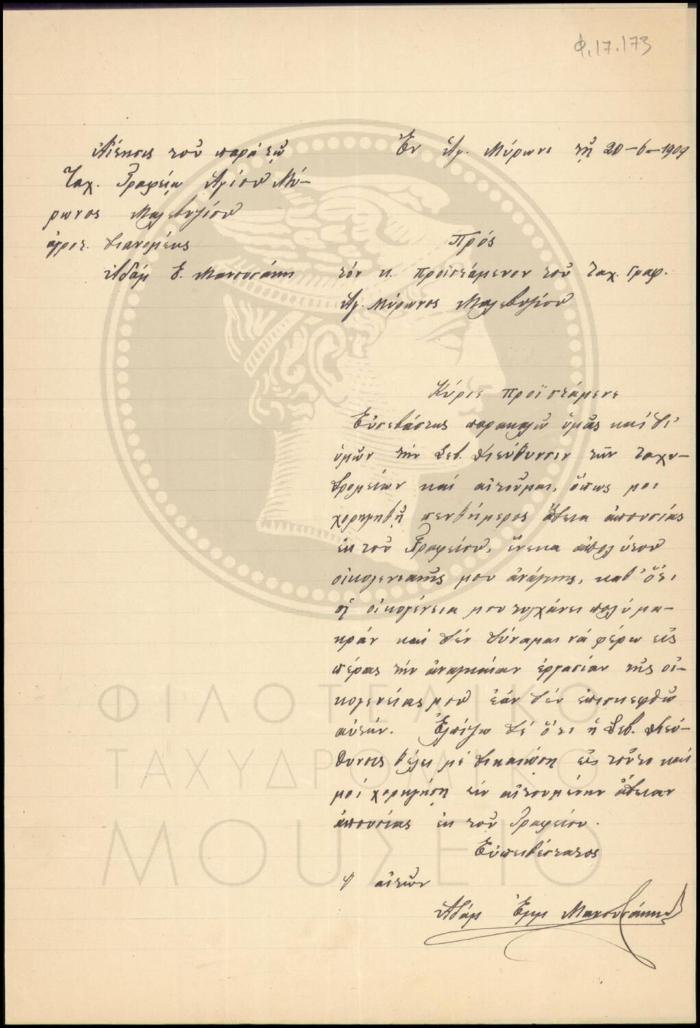 Φ.17.173
Αἴτησις τοῦ παρὰ τῷ
Ταχ. Γραφείῳ Ἁγίου Μύ-
ρωνος Μαλεβυζίου
ἀγροτ. διανομέως
Ἀδάμ Ε.
Ἐν Ἁγ. Μύρωνι τῇ 20-6-1909
Πρός
τόν κ. προϊστάμενον τοῦ ταχ. γραφ.
Ἁγ. Μύρωνος Μαλεβυζίου
Κύριε προϊστάμενε
Εὐσεβάστως παρακαλῶ ὑμᾶς καί δι'
ὑμῶν τήν Σεβ. Διεύθυνσιν τῶν ταχυ-
δρομείων καί αἰτοῦμαι, ὅπως μοι
χορηγηθῇ πενθήμερος ἄδεια ἀπουσίας
ἐκ τοῦ Γραφείου, ἕνεκα
οἰκογενειακῆς μου ἀνάγκης, καθ' ὅτι
ἡ οἰκογένεια μου τυχάνει πολύ μα-
κράν καί δέν δύναμαι νά φέρω εἰς
πέρας τήν ἀναγκαίαν ἐργασίαν τῆς οἰ-
κογενείας μου ἐάν δέν ἐπισκεφθῶ
αὐτήν. Ἐλπίζω δέ ὅτι ἡ Σεβ. Διεύ-
θυνσις θέλει μέ δικαιώσῃ εἰς τοῦτο καί
μοί χορηγήσῃ τήν αἰτουμένην ἄδειαν
ἀπουσίας ἐκ τοῦ Γραφείου.
Εὐπειθέστατος
ὁ αἰτῶν
Ἀδάμ Ἐμμ
ΦΙΛΟΤΕΛΙΚΟ
ΤΑΧΥΔΡΟΜΙΚΟ
ΜΟΥΣΕΙΟ